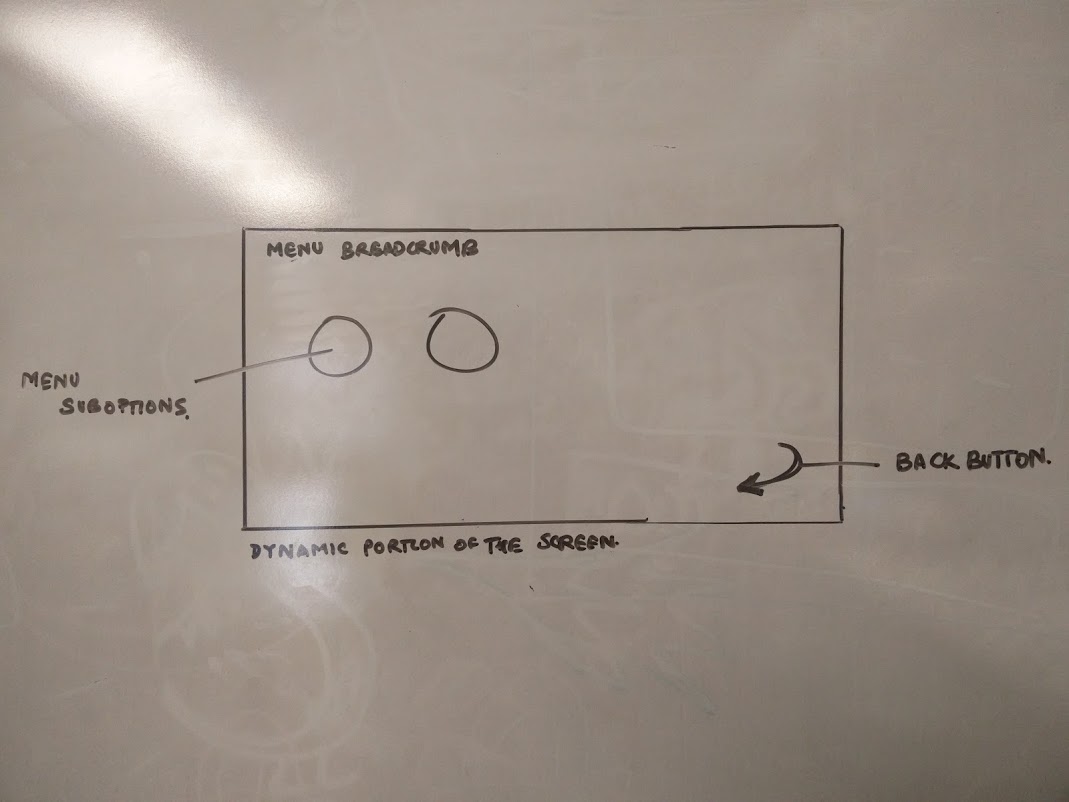 MENU BREADCRUMB
MENU
SUBOPTIONS.
BACK BUTTON.
DYNAMIC PORTION OF THE SCREEN.